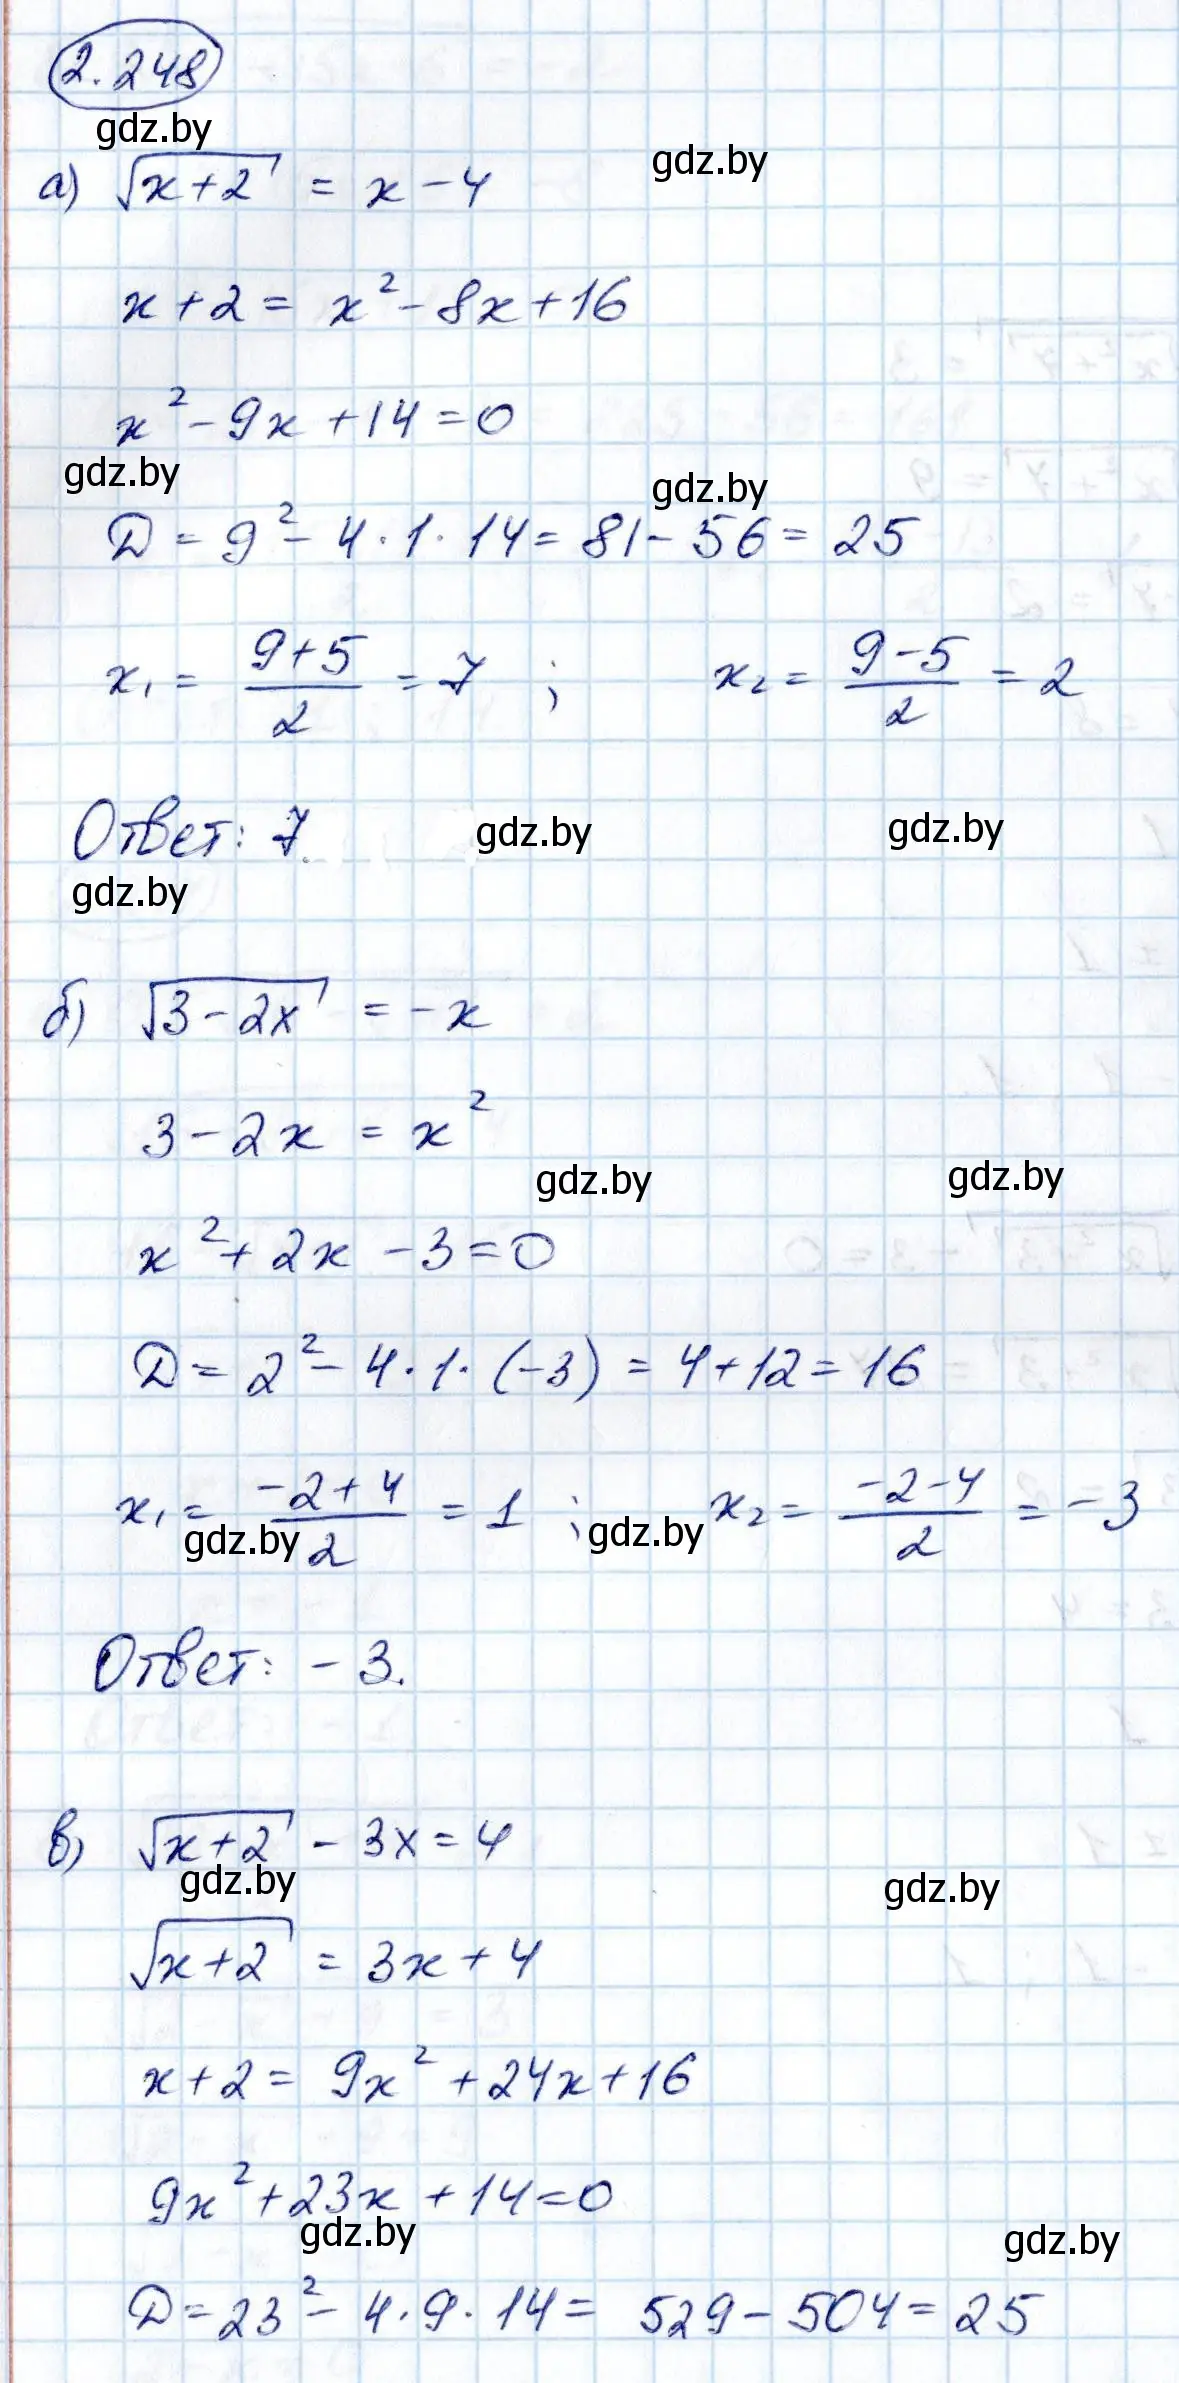 2.248
gdz.by
а) √(x+2) = x - 4
gdz.by
x + 2 = x² - 8x + 16
x² - 9x + 14 = 0
gdz.by gdz.by
D = 9² - 4 · 1 · 14 = 81 - 56 = 25
x₁ = (9+5)/2 = 7 ; x₂ = (9-5)/2 = 2
Ответ: 7.
gdz.by gdz.by
gdz.by
б) √(3-2x) = -x
3 - 2x = x²
gdz.by gdz.by
x² + 2x - 3 = 0
D = 2² - 4 · 1 · (-3) = 4 + 12 = 16
x₁ = (-2+4)/2 = 1 ; x₂ = (-2-4)/2 = -3
gdz.by gdz.by
Ответ: -3.
в) √(x+2) - 3x = 4
gdz.by gdz.by
√(x+2) = 3x + 4
x + 2 = 9x² + 24x + 16
9x² + 23x + 14 = 0
gdz.by gdz.by
D = 23² - 4 · 9 · 14 = 529 - 504 = 25